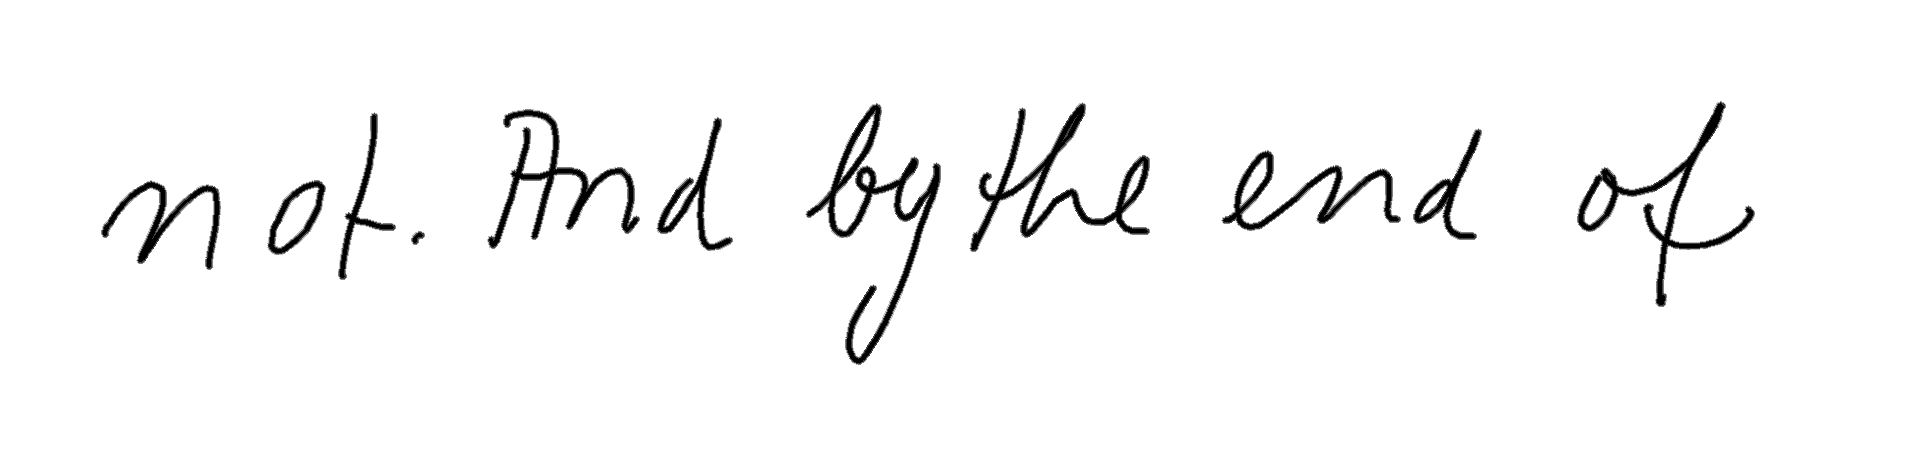 not. And by the end of